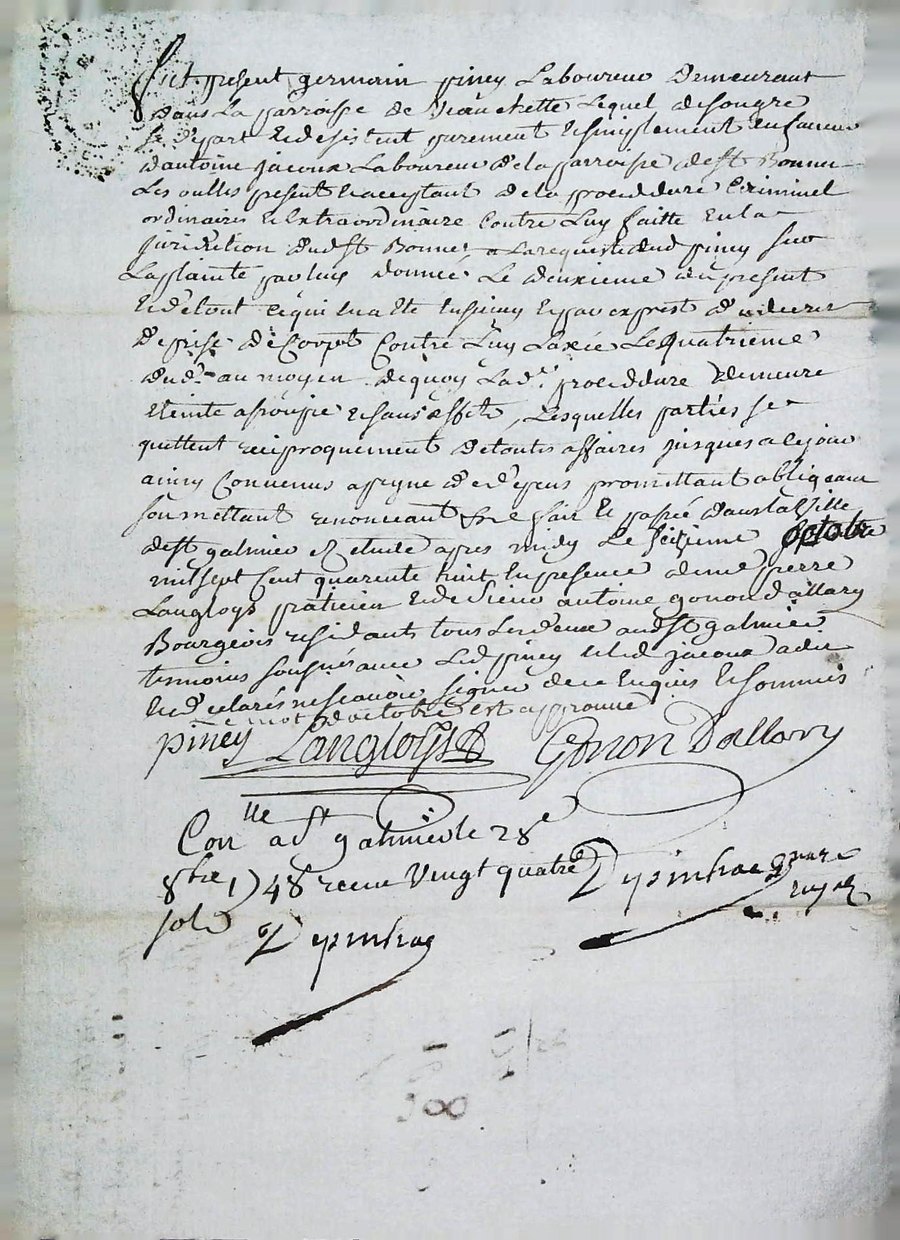 fut present germain piney Laboureur demeurant
dans La parroisse de Veauchette Lequel de son gre
se depart et desistent purement et simplement en faveur
d'antoine jacoux Laboureur de la parroisse de St Bonnet
Les oulles present et acceptant de la procedure Criminel
ordinaire et Extraordinaire Contre Luy faitte En la
juridition dud St Bonnet a La requeste dud piney sur
La plainte par luy donnée Le deuxieme du present
et de tout ce qui
de prise de Corps Contre Luy Laxée Le quatrieme
dud. au moyen de quoy Lad. procedure demeure
eteinte assoupie et sans effets, Lesquelles parties se
quittent reciproquement de touts affaires jusques a ce jour
ainsy Convenus a peyne de depens promettant obligeant
soumettant renonçant fait et passé dans la Ville
de St galmier Et etude apres midy Le seizieme octobre
mil sept Cent quarente huit En presence de me pierre
Langloys praticien et de Sieur antoine gonon d'allary
Bourgeois residants tous Les deux aud St galmier
temoins sousignés avec Led piney et led jacoux a
declarés ne scavoir signer de ce Enquis et sommés
Le mot d'octobre est approuvé
piney Langloys Gonon Dallary
Con.lle a St galmier le 28e
8bre 1748 receu Vingt quatre
sols Dypinhac
Dypinhac
royal